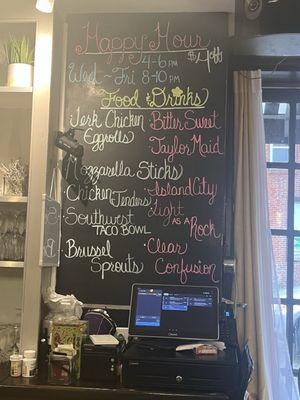 Happy Hour
Wed - Fri 4-6 PM
8-10 PM
$4 off
Food & Drinks
Jerk Chicken
Eggrolls
Mozzarella Sticks
Chicken Tenders
Southwest
TACO BOWL
Brussel
Sprouts
• Bitter Sweet
• Taylor Maid
• Island City
• Light
AS A Rock
• Clear
Confusion